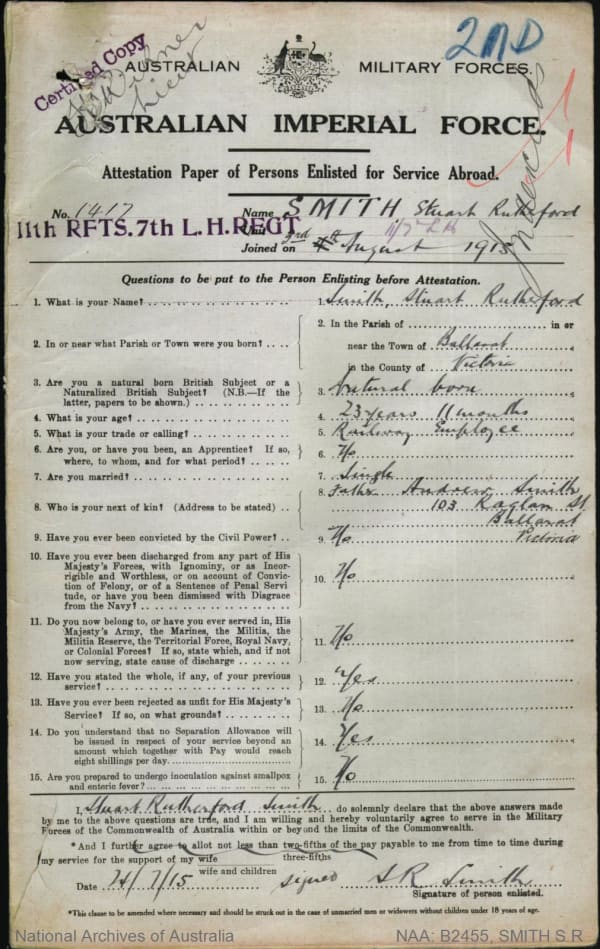 2ND
Certified Copy
Lieut
AUSTRALIAN MILITARY FORCES.
AUSTRALIAN IMPERIAL FORCE.
Attestation Paper of Persons Enlisted for Service Abroad.
No. 1417 Name SMITH Stuart Rutherford
11th RFTS. 7th L. H. REGT. Unit 11/7 L H
Joined on 3rd August 1915
Questions to be put to the Person Enlisting before Attestation.
1. What is your Name? 1. Smith, Stuart Rutherford
2. In or near what Parish or Town were you born? 2. In the Parish of in or
near the Town of Ballarat
in the County of Victoria
3. Are you a natural born British Subject or a
Naturalized British Subject? (N.B.—If the
latter, papers to be shown.) 3. Natural born
4. What is your age? 4. 23 years 11 months
5. What is your trade or calling? 5. Railway Employee
6. Are you, or have you been, an Apprentice? If so,
where, to whom, and for what period? 6. No
7. Are you married? 7. Single
8. Who is your next of kin? (Address to be stated) 8. Father Andrew Smith
103 Raglan St
Ballarat
Victoria
9. Have you ever been convicted by the Civil Power? 9. No
10. Have you ever been discharged from any part of His
Majesty's Forces, with Ignominy, or as Incor-
rigible and Worthless, or on account of Convic-
tion of Felony, or of a Sentence of Penal Servi-
tude, or have you been dismissed with Disgrace
from the Navy? 10. No
11. Do you now belong to, or have you ever served in, His
Majesty's Army, the Marines, the Militia, the
Militia Reserve, the Territorial Force, Royal Navy,
or Colonial Forces? If so, state which, and if not
now serving, state cause of discharge 11. No
12. Have you stated the whole, if any, of your previous
service? 12. Yes
13. Have you ever been rejected as unfit for His Majesty's
Service? If so, on what grounds? 13. No
14. Do you understand that no Separation Allowance will
be issued in respect of your service beyond an
amount which together with Pay would reach
eight shillings per day. 14. Yes
15. Are you prepared to undergo inoculation against smallpox
and enteric fever? 15. No
I, Stuart Rutherford Smith do solemnly declare that the above answers made
by me to the above questions are true, and I am willing and hereby voluntarily agree to serve in the Military
Forces of the Commonwealth of Australia within or beyond the limits of the Commonwealth.
*And I further agree to allot not less than two-fifths of the pay payable to me from time to time during
three-fifths
my service for the support of my wife
wife and children
Date 24/7/15 signed S R Smith
Signature of person enlisted.
*This clause to be amended where necessary and should be struck out in the case of unmarried men or widowers without children under 18 years of age.
National Archives of Australia NAA: B2455, SMITH S R